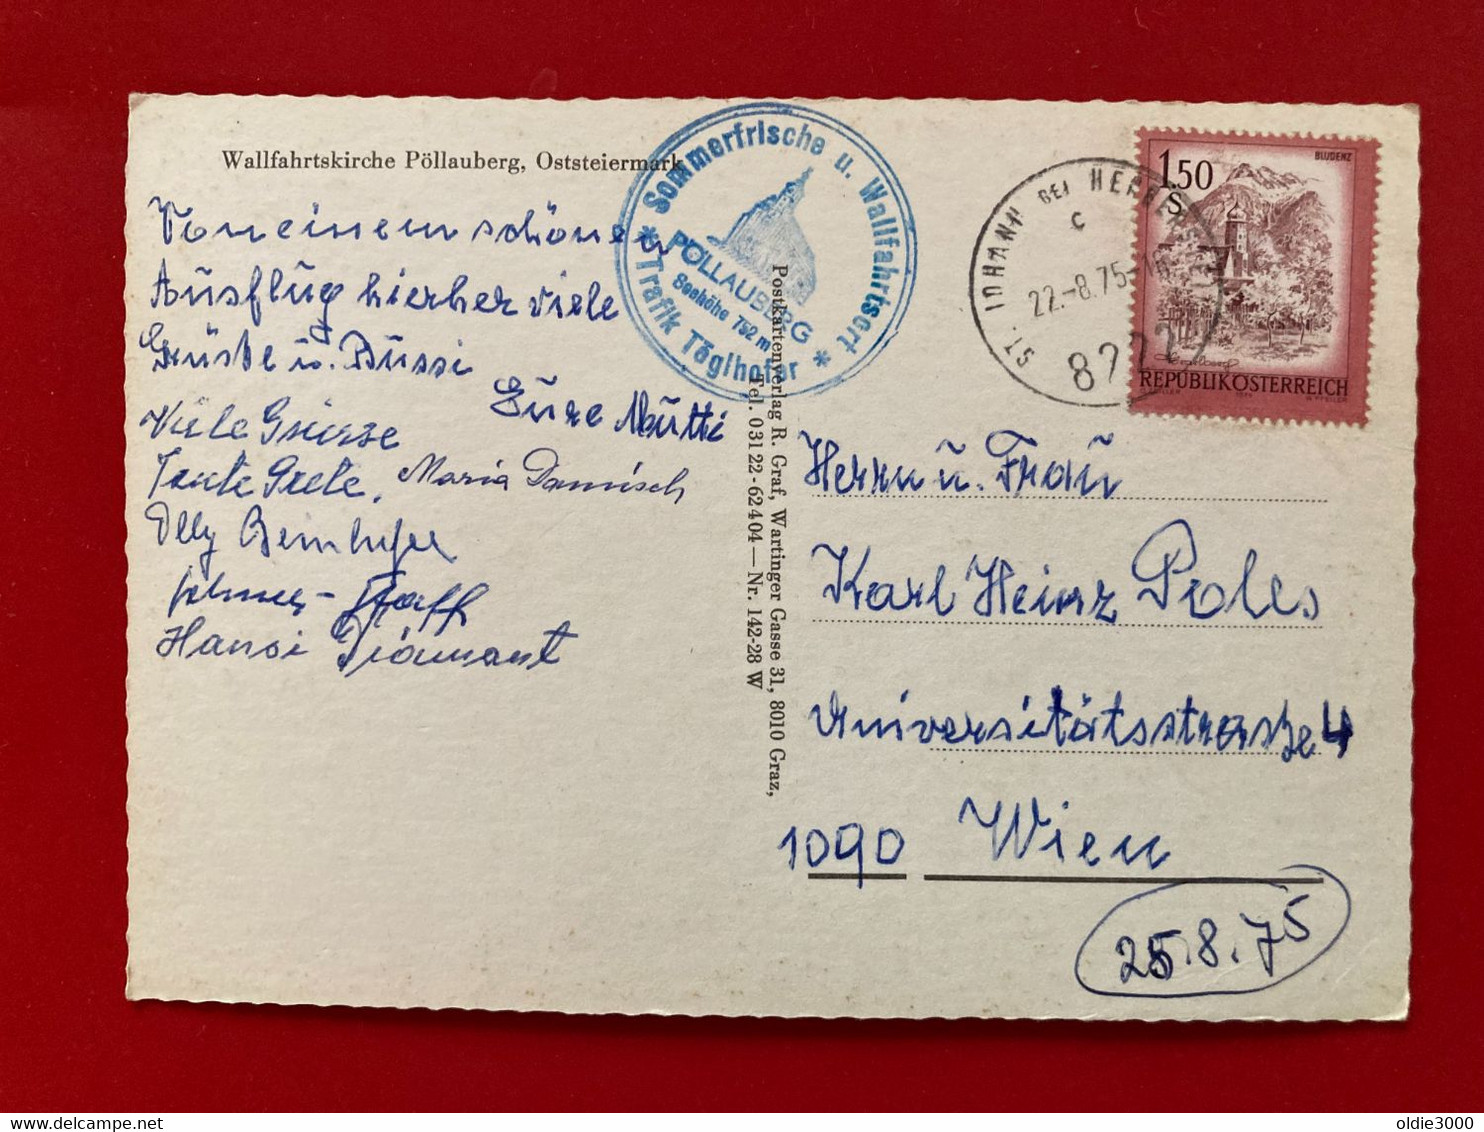 Wallfahrtskirche Pöllauberg, Oststeiermark
Von einem schönen
Ausflug hierher viele
Grüße u. Bussi
Eure Mutti
Viele Grüsse
Tante Grete, Maria Damisch
Olly
Hansi Diamant
* Sommerfrische u. Wallfahrtsort *
PÖLLAUBERG
Seehöhe 752 m
Trafik Töglhofer
Postkartenverlag R. Graf, Wartinger Gasse 31, 8010 Graz,
Tel. 03122-62404 — Nr. 142-28 W
ST. JOHANN BEI
c
22.-8.75-16
8222
1.50
S
BLUDENZ
REPUBLIK ÖSTERREICH
Herrn u. Frau
Karl Heinz Poles
Universitätsstrasse 4
1090 Wien
25.8.75
delcampe.net
oldie3000